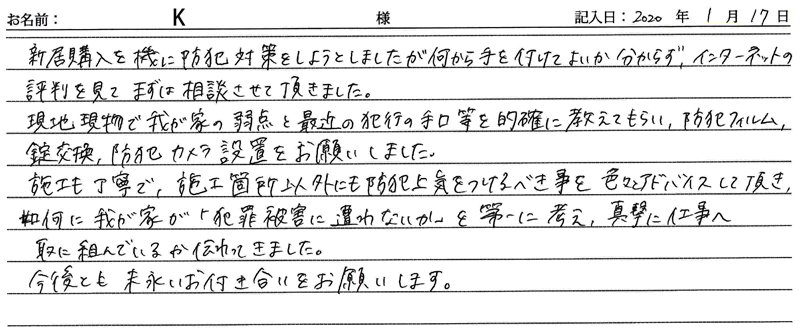 お名前： K 様 記入日：2020 年 1 月 17 日
新居購入を機に防犯対策をしようとしましたが何から手を付けてよいか分からず，インターネットの
評判を見てまずは相談させて頂きました。
現地現物で我が家の弱点と最近の犯行の手口等を的確に教えてもらい，防犯フィルム，
錠交換，防犯カメラ設置をお願いしました。
施工も丁寧で，施工箇所以外にも防犯上気をつけるべき事を色々とアドバイスして頂き，
如何に我が家が「犯罪被害に遭わないか」を第一に考え，真摯に仕事へ
取に組んでいるか伝わってきました。
今後とも末永いお付き合いをお願いします。